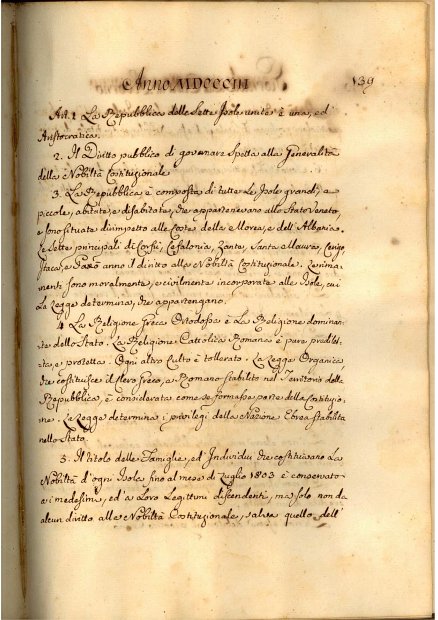 Anno MDCCCIII
139
Art. 1 La Repubblica delle Sette Isole unite è una, ed
Aristocratica.
2. Il Diritto pubblico di governare spetta alla Generalità
della Nobiltà Costituzionale
3. La Repubblica è composta di tutte le Isole grandi, e
piccole, abitate, e disabitate, che appartenevano allo Stato Veneto,
e sono situate dirimpetto alle Coste della Morea, e dell'Albania.
Le Sette principali di Corfù, Cefalonia, Zante, Santa Maura, Cerigo,
Itaca, e Paxò anno il diritto alla Nobiltà Costituzionale. Le rima-
nenti sono moralmente, e civilmente incorporate alle Isole, cui
la Legge determina, che appartengano.
4. La Religione Greca Ortodossa è la Religione dominan-
te dello Stato. La Religione Cattolica Romana è pure predilet-
ta, e protetta. Ogni altro Culto è tollerato. La Legge Organica,
che costituisce il Clero Greco, e Romano stabilito nel Territorio della
Repubblica, è considerata come se formasse parte della Costituzio-
ne. La Legge determina i privilegi della Nazione Ebrea stabilita
nello Stato.
5. Il titolo delle Famiglie, ed Individui che costituivano la
Nobiltà d'ogni Isola fino al mese di Luglio 1803 è conservato
a i medesimi, ed a loro Legittimi discendenti, ma solo non dà
alcun diritto alla Nobiltà Costituzionale, salvo quello dell'